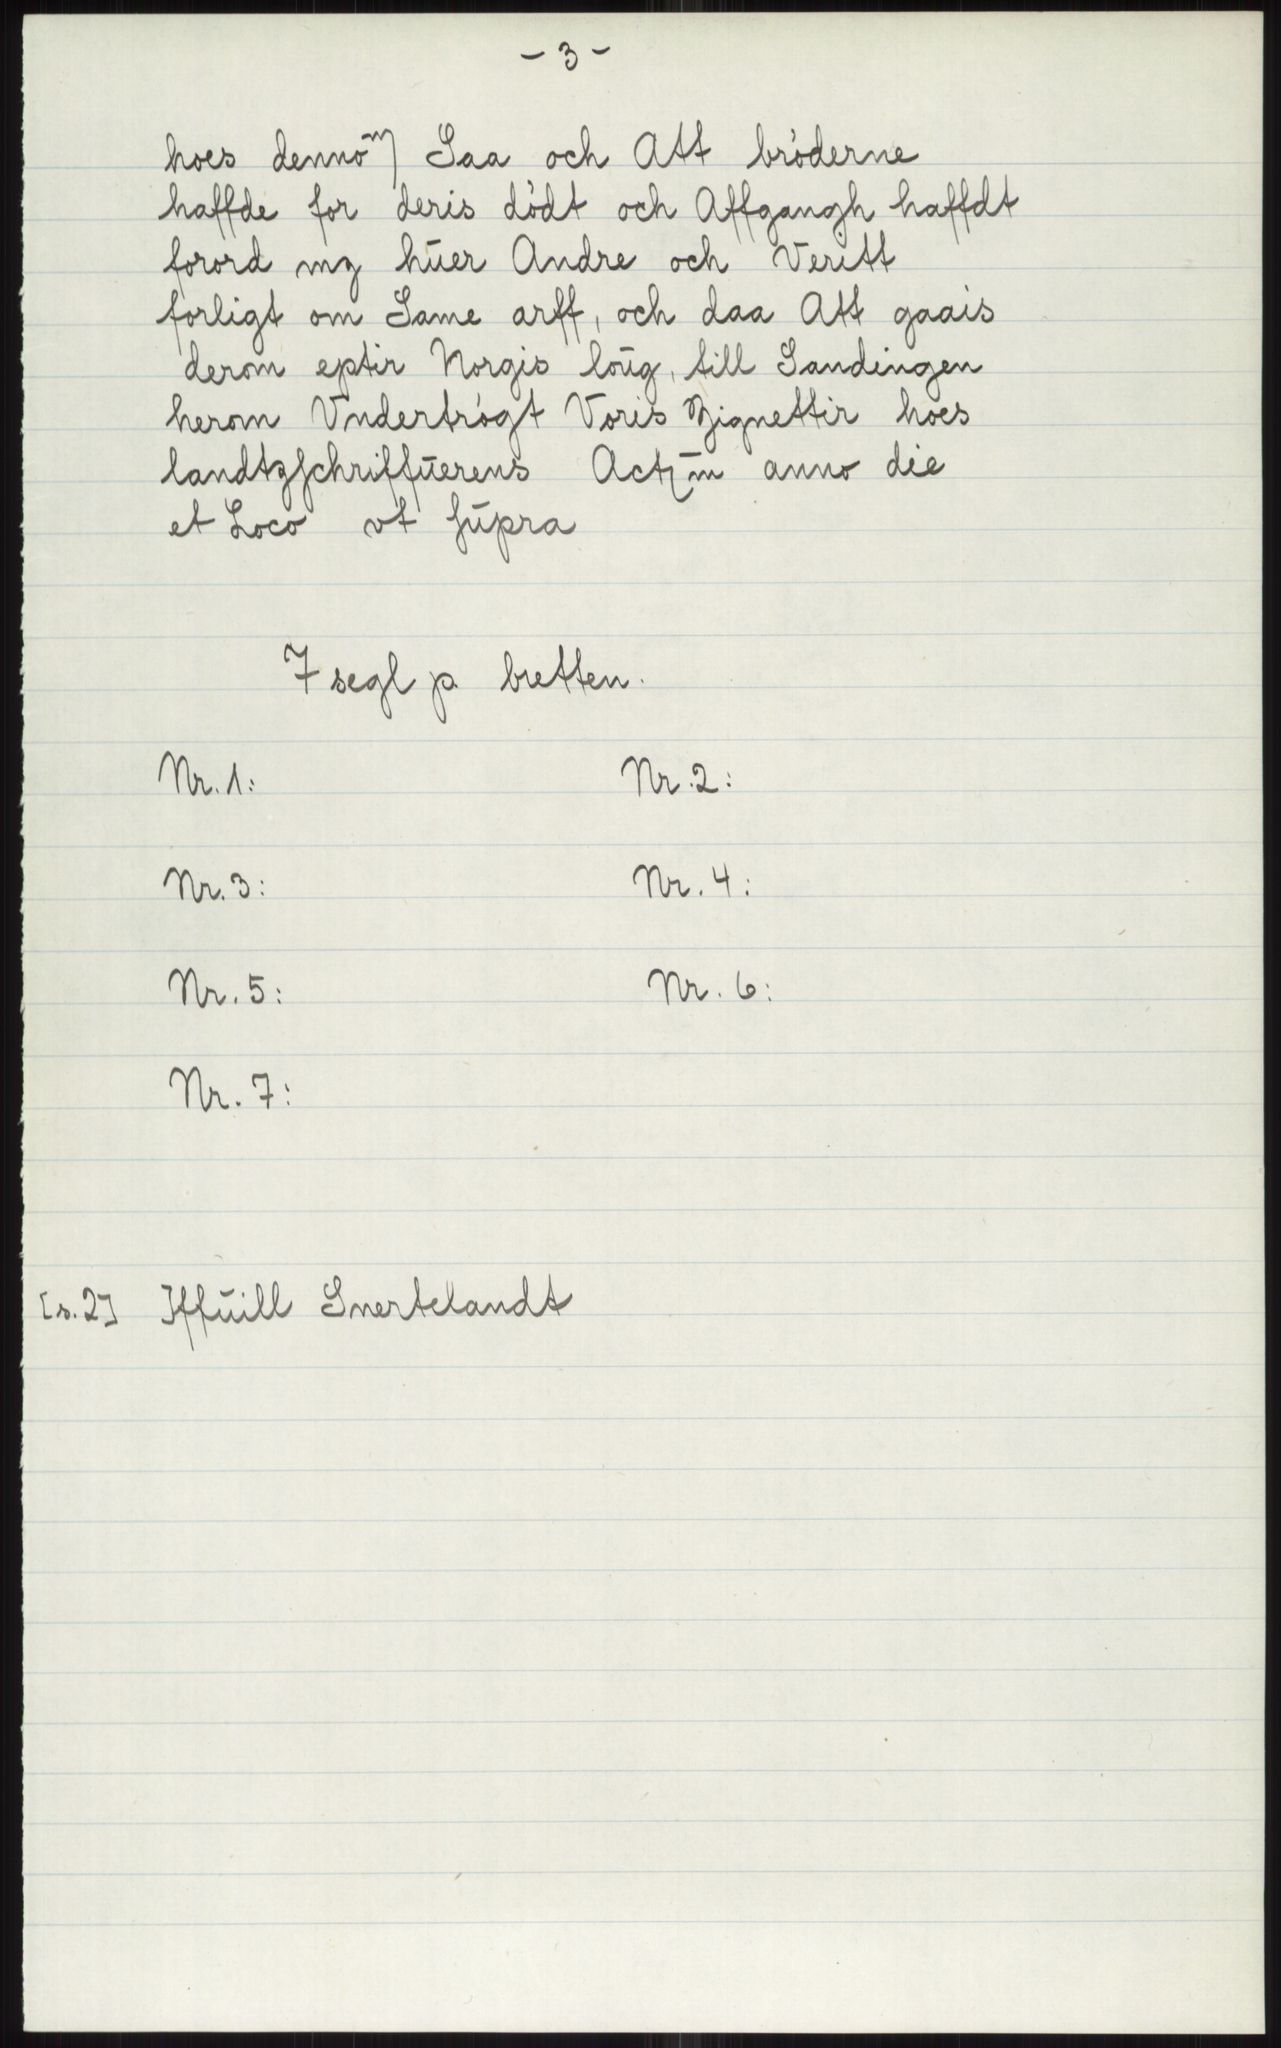 - 3 -
hoes dennom̄ Saa och Att bröderne
haffde for deris dödt och Affgangh haffdt
forord mz hūer Andre och Veritt
forligt om Same arff, och daa Att gaais
derom eptir Norgis loūg, till Sandingen
herom Vndertrögt Voris Zignettir hoes
landtzschriffūerens Actūm anno die
et Loco vt sūpra
7 segl p. bretten.
Nr. 1: Nr. 2:
Nr. 3: Nr. 4:
Nr. 5: Nr. 6:
Nr. 7:
[s. 2] Iffūill Snertelandt